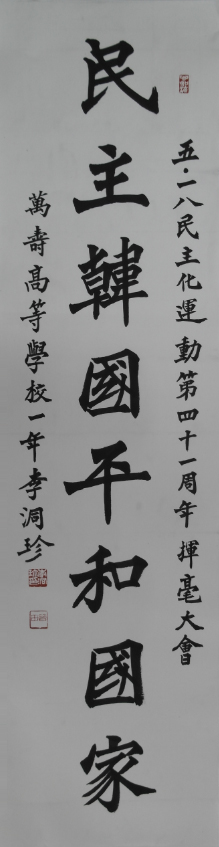 五·一八民主化運動第四十一周年 揮毫大會
民主韓國平和國家
萬壽高等學校一年李洞珍